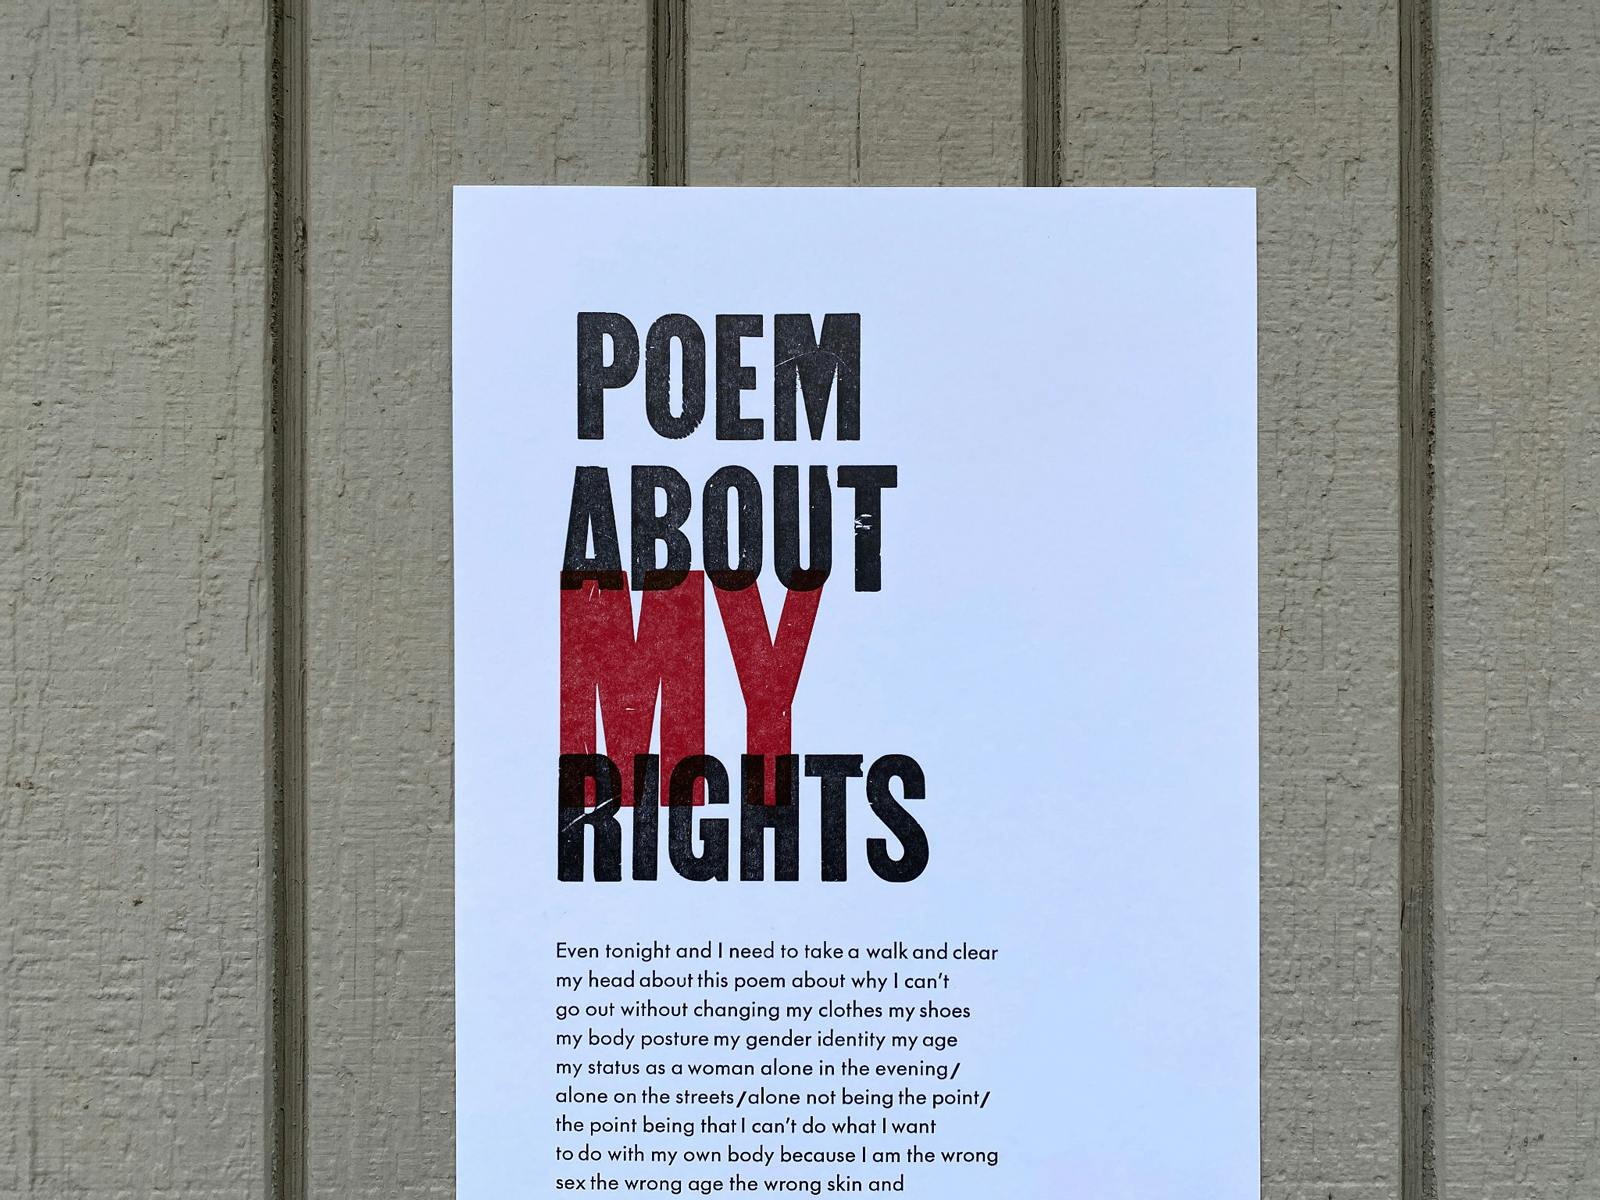 POEM
ABOUT
MY
RIGHTS
Even tonight and I need to take a walk and clear
my head about this poem about why I can't
go out without changing my clothes my shoes
my body posture my gender identity my age
my status as a woman alone in the evening/
alone on the streets/alone not being the point/
the point being that I can't do what I want
to do with my own body because I am the wrong
sex the wrong age the wrong skin and